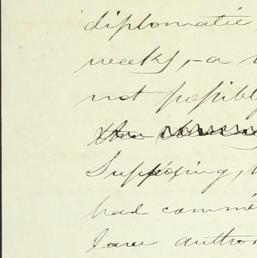 diplomatic
weeks, - a
not possibly
the
Supposing,
had commi
law author